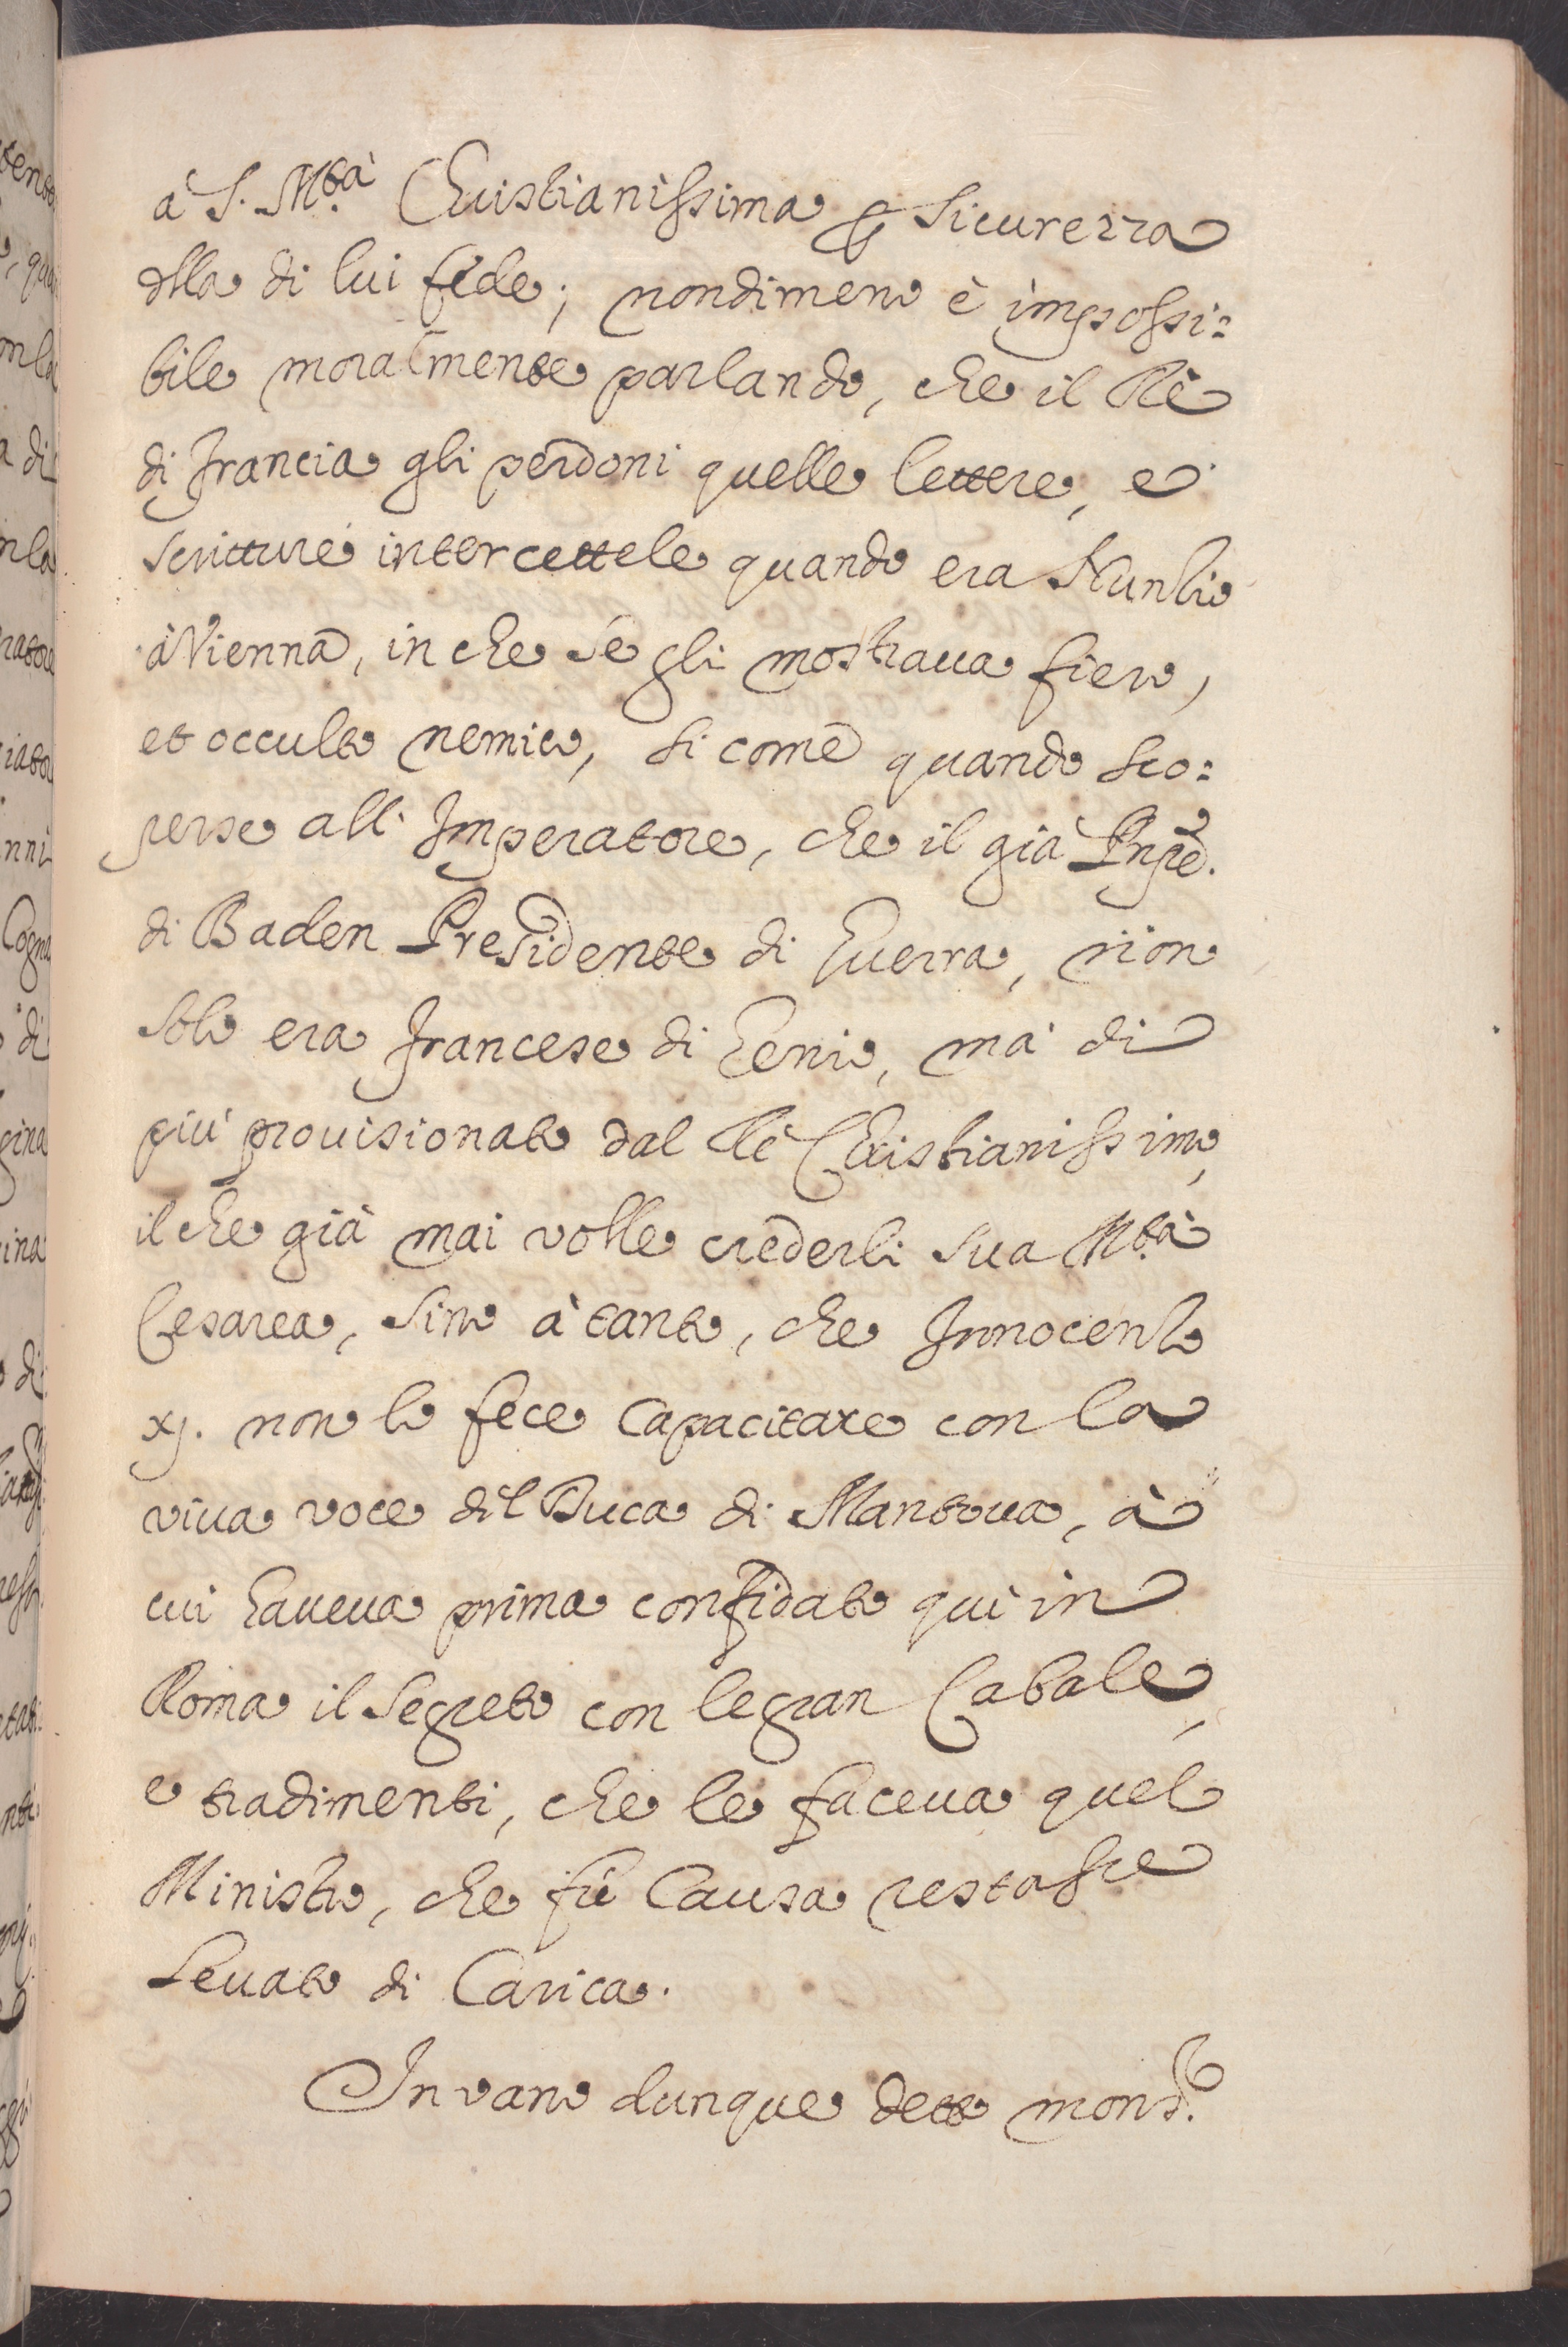 à S. M.tà Christianissima p sicurezza
dlla di lui fede; nondimeno è impossi:
bile moralmente parlando, che il Rè
di Francia gli perdoni quelle lettere, e
scritture intercettele quando era Nuntio
à Vienna, in che se gli mostraua fiero,
et occulto nemico, si come quando sco:
perse all' Imperatore, che il già Pnpe.
di Baden Presidente di Guerra, non
solo era francese di Genio, mà di
più prouisionato dal Rè Christianissimo,
il che già mai volle crederli sua M.tà
Cesarea, sino à tanto, che Innocentio
xj. non lo fece Capacitare con la
viua voce dil Duca di Mantoua, à
cui haueua prima confidato quì in
Roma il segreto con le gran Cabale,
e tradimenti, che le faceua quel
Ministro, che fù Causa restasse
leuato di Carica.
In vano dunque detto mons.r